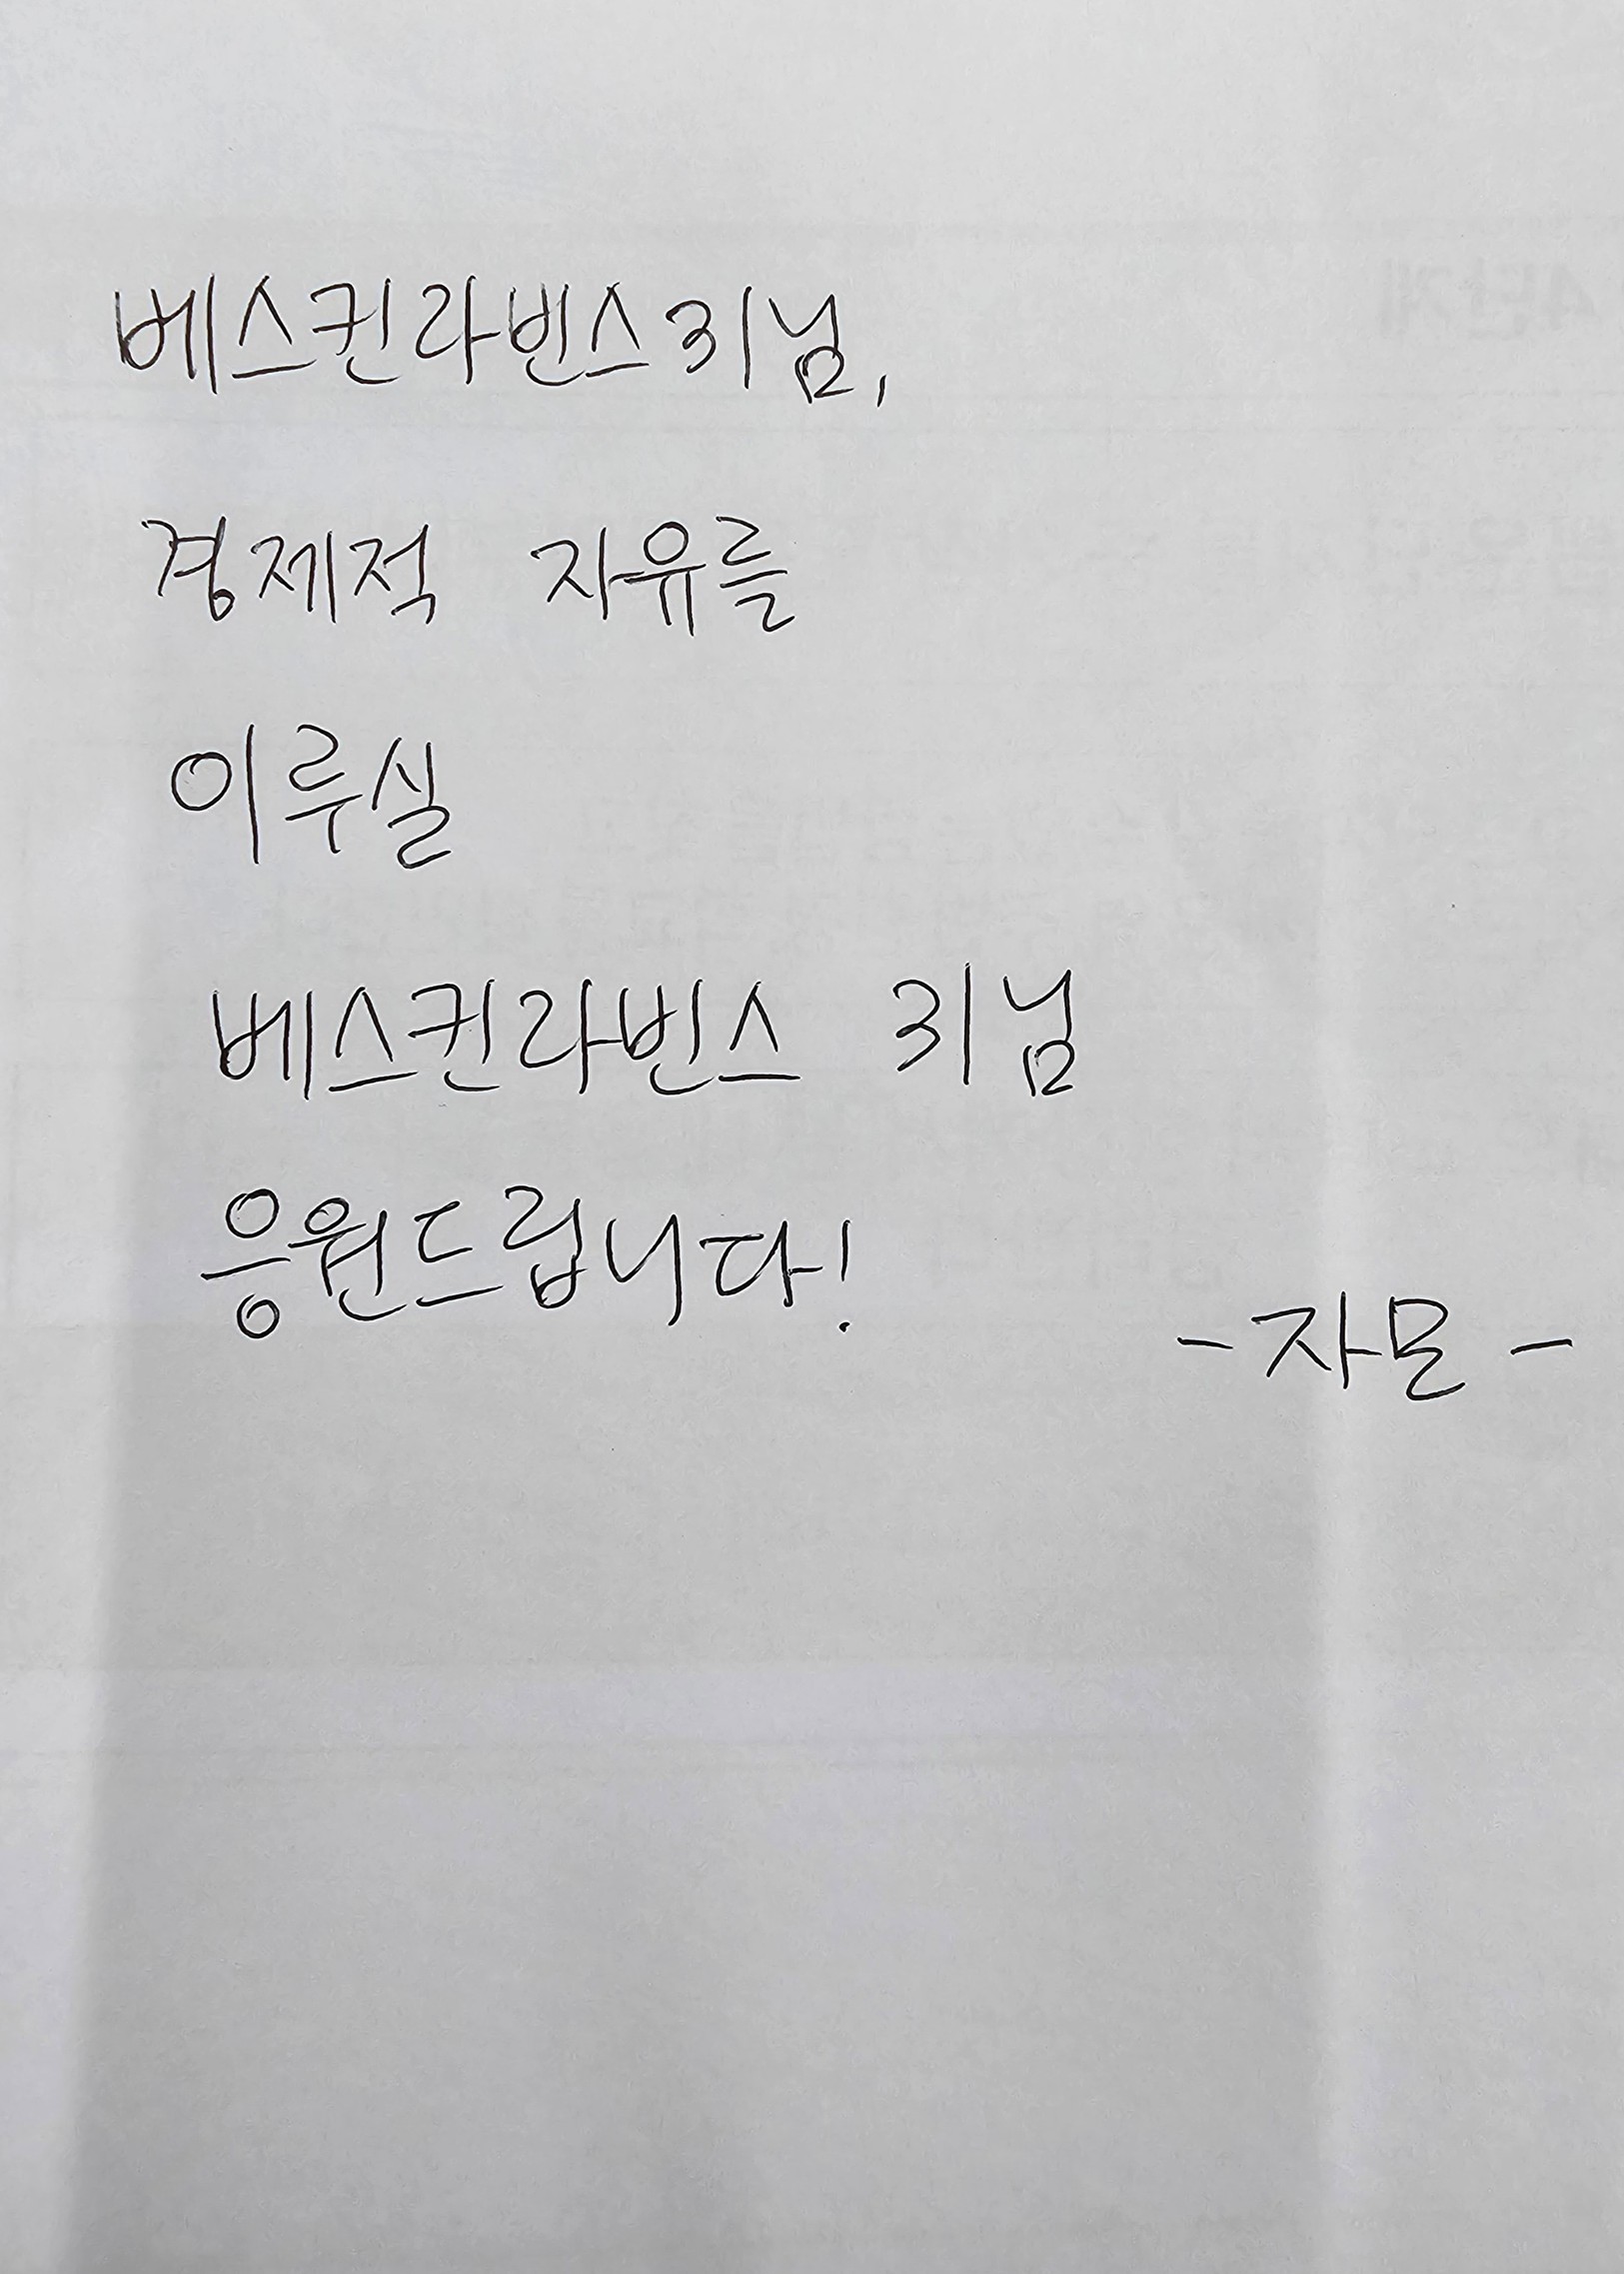 베스킨라빈스31님,
경제적 자유를
이루실
베스킨라빈스 31님
응원드립니다!
-자모-